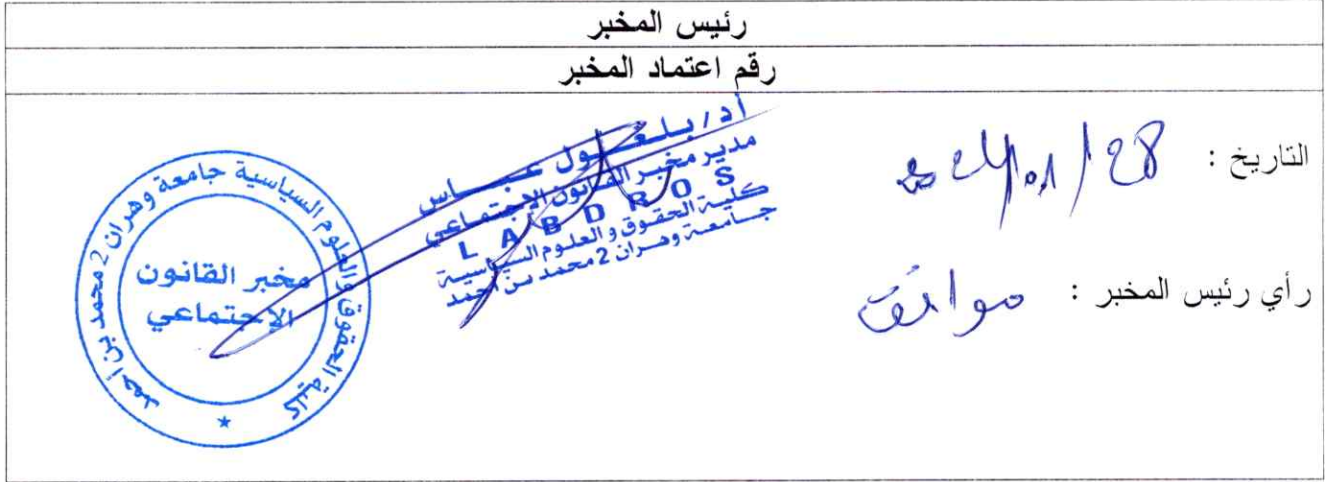 رئيس المخبر
رقم اعتماد المخبر
التاريخ : 28/01/
رأي رئيس المخبر : موافق
أد/بلعـــول عبــاس
مدير مخبر القانون الإجتماعي
L A B D R O S
كلية الحقوق و العلوم السياسية
جـامعة وهـران 2 محمد بن أحمد
كلية الحقوق والعلوم السياسية جامعة وهران 2 محمد بن أحمد
مخبر القانون
الإجتماعي